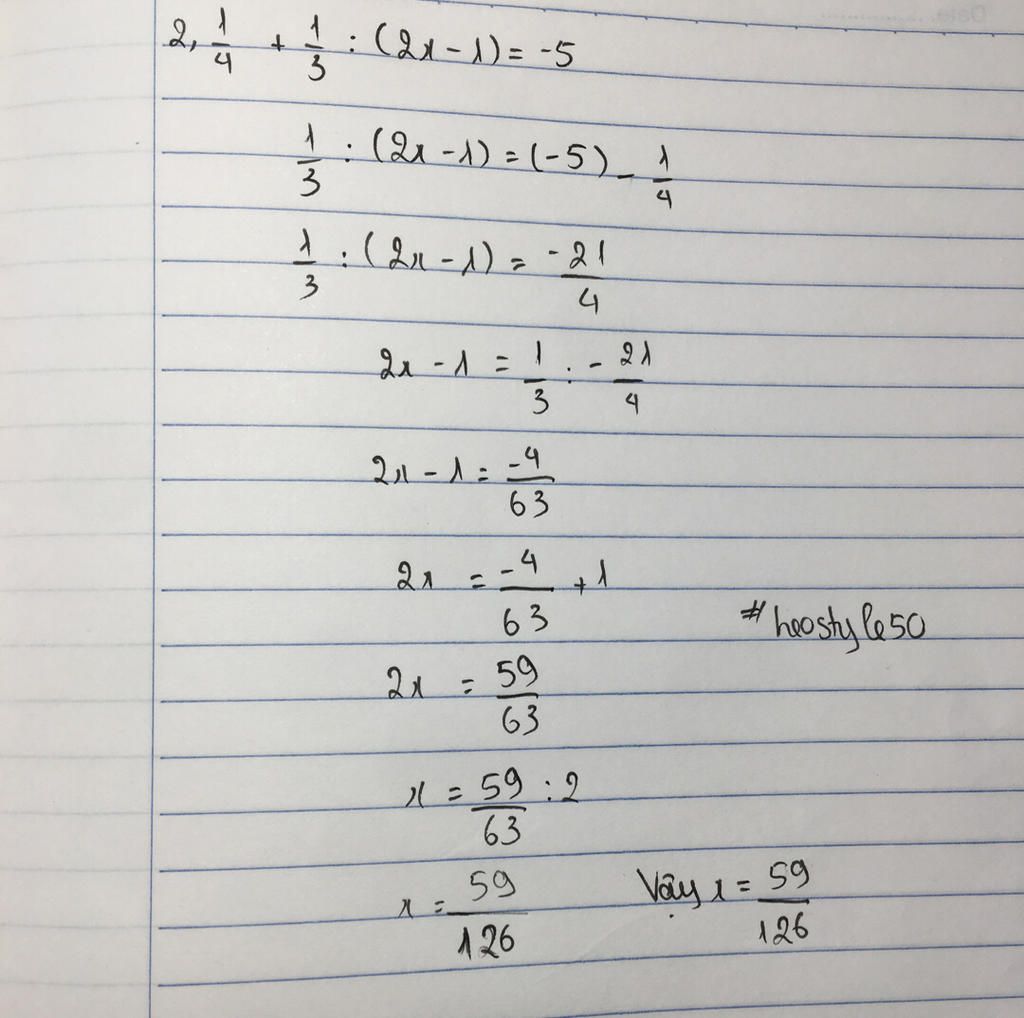 Date.
2, 1/4 + 1/3 : (2x - 1) = -5
1/3 : (2x - 1) = (-5) - 1/4
1/3 : (2x - 1) = -21/4
2x - 1 = 1/3 : -21/4
2x - 1 = -4/63
2x = -4/63 + 1
#heostyle50
2x = 59/63
x = 59/63 : 2
x = 59/126 Vậy x = 59/126